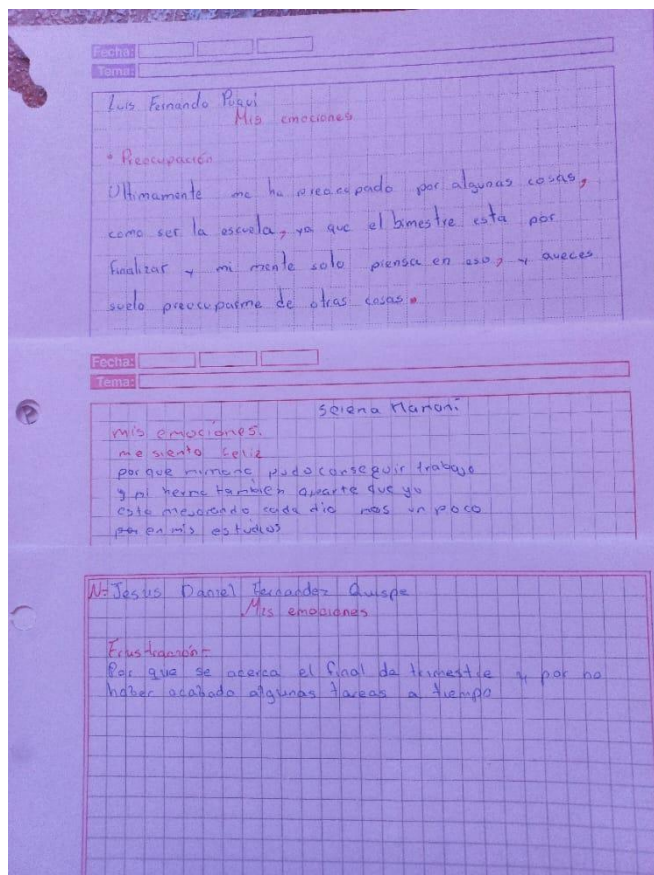 Fecha:
Tema:
Luis Fernando
Mis emociones
• Preocupación
Ultimamente me ha preocupado por algunas cosas,
como ser la escuela, ya que el bimestre está por
finalizar y mi mente solo piensa en eso, y aveces
suelo preocuparme de otras cosas.
Fecha:
Tema:
Selena Mamani
mis emociones.
me siento feliz
por que mi mamá pudo conseguir trabajo
y mi también aparte que yo
esta mejorando cada dia mas un poco
en mis estudios
N= Jesus Daniel Fernandez Quispe
Mis emociones
Frustración-
Por que se acerca el final de trimestre y por no
haber acabado algunas tareas a tiempo